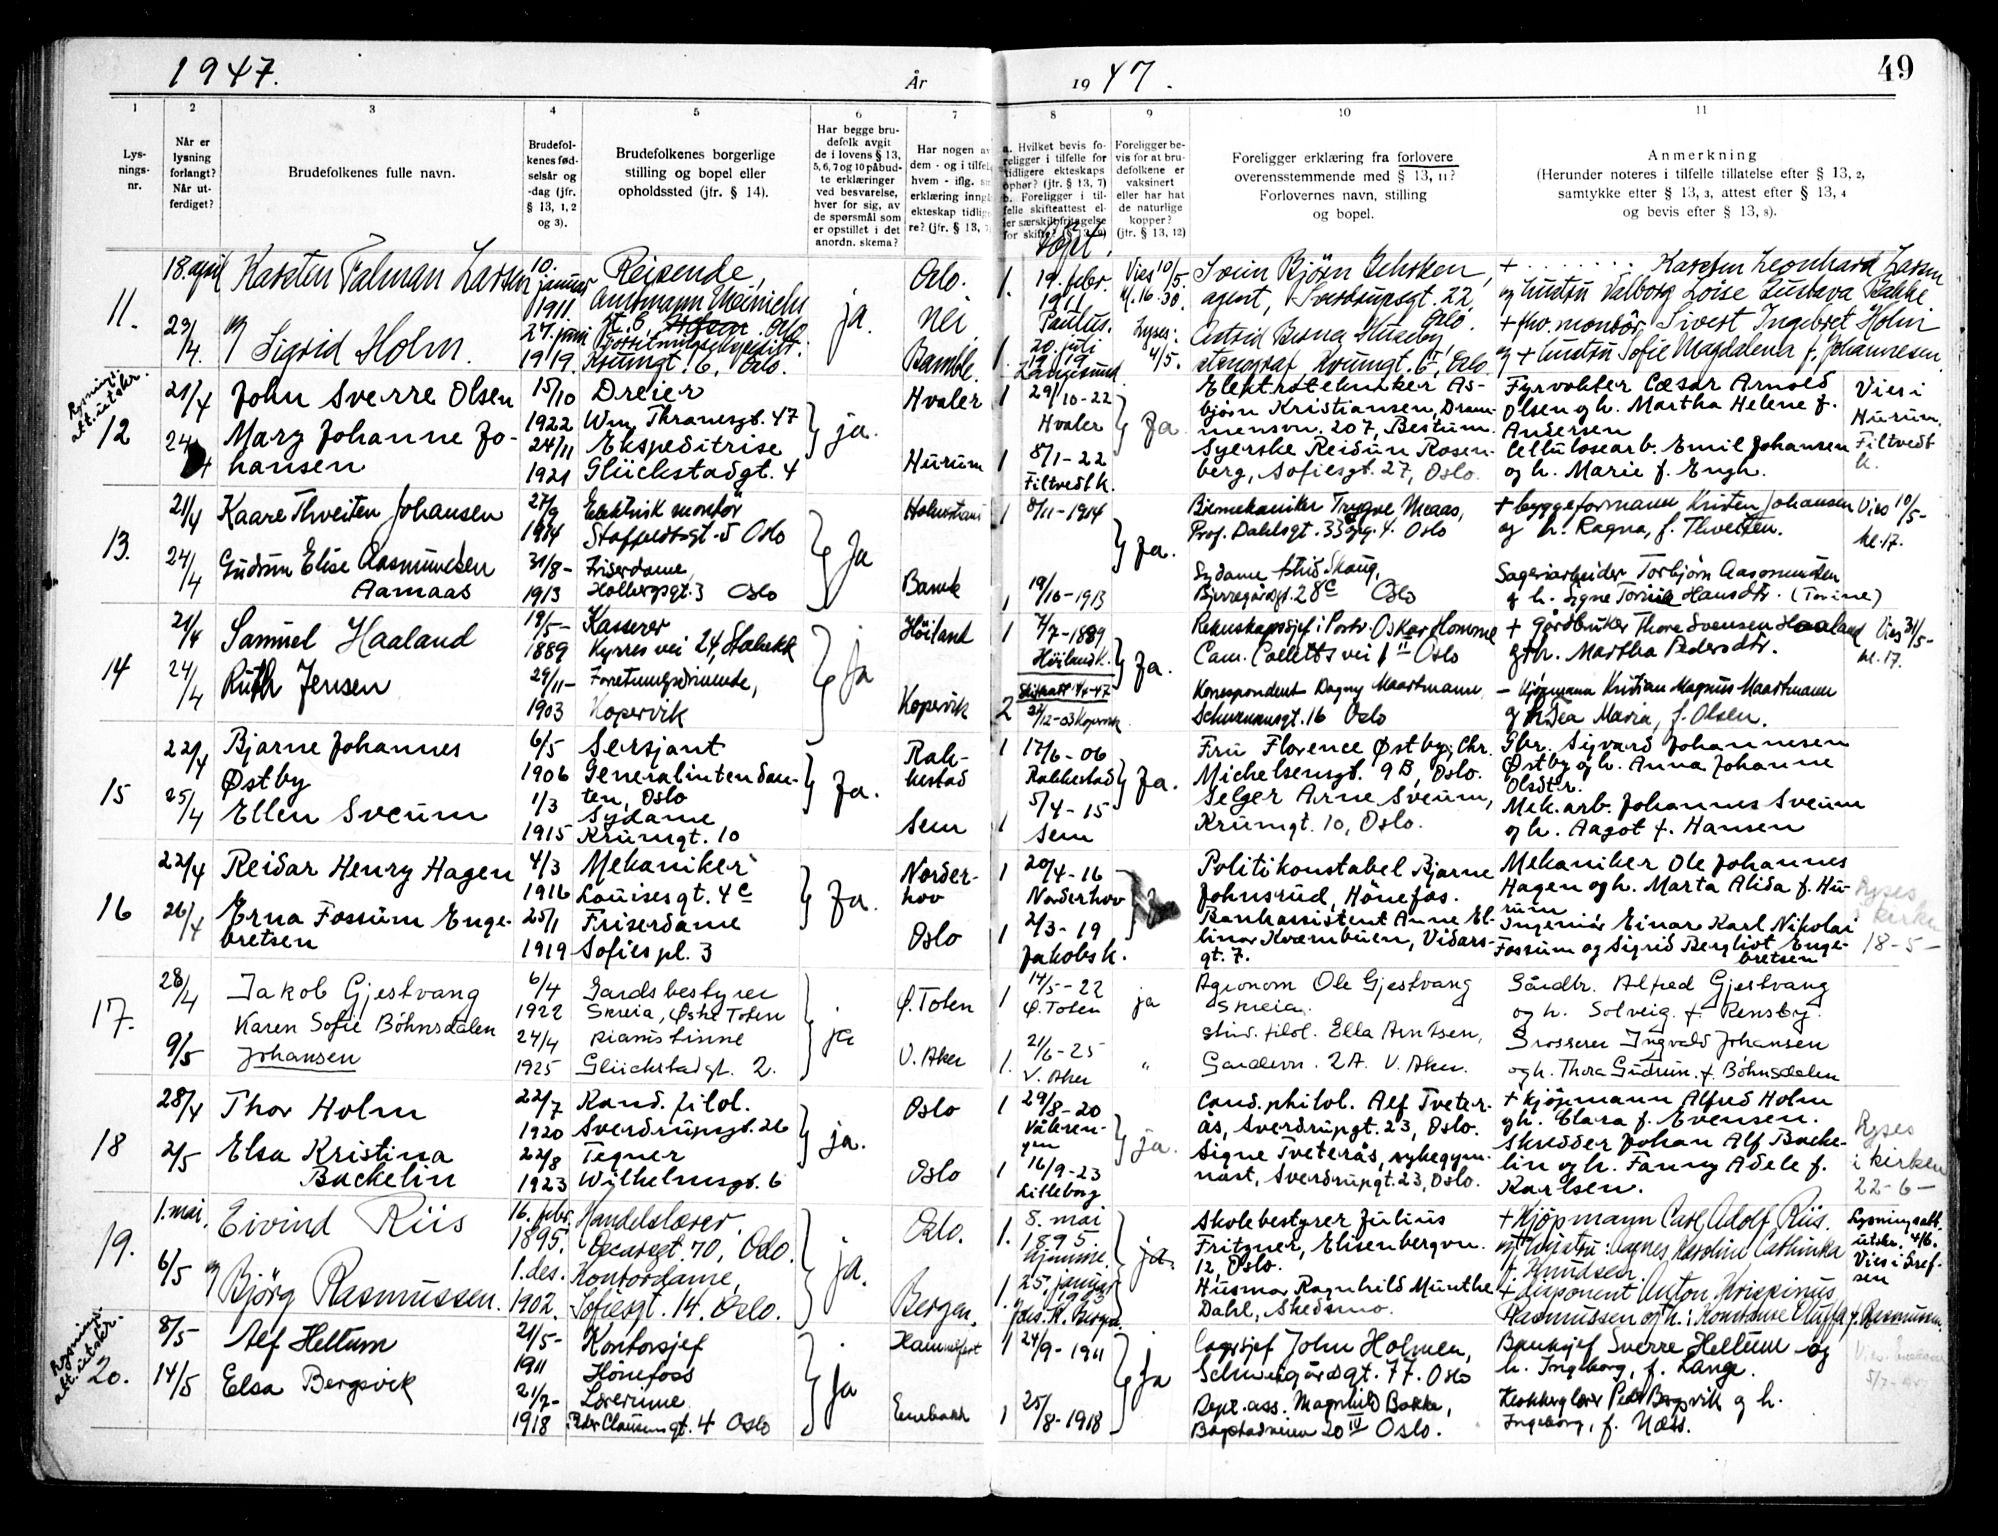 1947.
År
1947.
49
1
2
3
4
5
6
7
8
9
10
11
Lys-
nings-
nr.
Når er
lysning
forlangt?
Når ut-
ferdiget?
Brudefolkenes fulle navn.
Brudefol-
kenes fød-
selsår og
-dag (jfr.
§ 13, 1, 2
og 3).
Brudefolkenes borgerlige
stilling og bopel eller
opholdssted (jfr. § 14).
Har begge bru-
defolk avgit
de i lovens § 13,
5, 6, 7 og 10 påbud-
te erklæringer
ved besvarelse,
hver for sig, av
de spørsmål som
er opstillet i det
anordn. skema?
Har nogen av
dem - og i tilfelle
hvem - iflg.
erklæring inngå
ekteskap tidlige-
re? (jfr. § 13, 7)
a. Hvilket bevis fo-
religger i tilfelle for
tidligere ekteskaps
ophør? (jfr. § 13, 7)
b. Foreligger i til-
felle skifteattest el-
ler særskilt fritagelse
for skifte?
Foreligger be-
vis for at bru-
defolkene er
vaksinert
eller har hat
de naturlige
kopper?
(jfr. § 13, 12)
Foreligger erklæring fra forlovere
overensstemmende med § 13, 11?
Forlovernes navn, stilling
og bopel.
Anmerkning
(Herunder noteres i tilfelle tillatelse efter § 13, 2,
samtykke efter § 13, 3, attest efter § 13, 4
og bevis efter § 13, 8).
11.
18. april
23/4.
Karsten Falman Larsen
og Sigrid Holm.
10. januar
1911.
27. juni
1919.
Reisende,
gt. 6, Oslo
Krumgt. 6, Oslo.
ja.
Oslo.
nei
Bamble.
1. 19. febr.
1911
Paulus.
1. 20. juli
1919
Langesund.
Vies 10/5.
kl. 16.30.
Lyses:
4/5.
Bjørn
agent, Sverdrupsgt. 22,
Oslo.
Astrid Berna Huseby,
stenograf, Krumgt. 6 II, Oslo.
+ . . . . . . Karsten Leonhard Larsen
og hustru Valborg Loise Gustava Bakke
+ fhv. montør, Sivert Ingebret Holm
og + hustru Sofie Magdalena f. Johannesen.
Lysnings-
att. utskr.
12
21/4
24/4
John Sverre Olsen
Mary Johanne Jo-
hansen
15/10
1922
24/11
1921
Dreier
Wm. Thranesgt. 47
Ekspeditrise
Glückstadgt. 4
ja.
Hvaler
Hurum
1 29/10-22
Hvaler
1 8/1-22
Filtvedt k.
Ja.
Elektrotekniker As-
bjørn Kristiansen, Dram-
mensvn. 207, Bestum.
Syerske Reidun Rosen-
berg, Sofiesgt. 27, Oslo.
Fyrvokter Cæsar Arnold
Olsen og h. Martha Helene f.
Andersen
Cellulosearb. Emil Johansen
og h. Marie f. Engh.
Vies i
Hurum.
Filtvedt
k.
13.
21/4
24/4
Kaare Thveiten Johansen
Gudrun Elise Aasmundsen
Aamaas
27/9
1914
31/8-
1913
Elektrisk montør
Stoffeldtsgt. 5 Oslo
Friserdame
Holbergsgt. 3 Oslo
Ja
Holmestrand
Bamle
1 8/11-1914
1 19/10-1913
Ja.
Biemekaniker Trygve Maas,
Prof. Dahlsgt. 33 4. Oslo
Sydame Astrid Skaug,
Bjerregårdsgt. 28c Oslo
+ byggeformann Kristen Johansen
og h. Ragna, f. Thveiten.
Sagerarbeider Torbjørn Aasmundsen
og h. Signe Torine Hansdtr. (Torine)
Vies 10/5-
kl. 17.
14
21/4
24/4
Samuel Haaland
Ruth Jensen
19/5-
1889
29/11-
1903
Kasserer
Kyrres vei 24, Stabekk
Forretningsdrivende,
Kopervik
Ja
Höiland
Kopervik
1 7/7-1889
Höiland k.
Skifteatt. 14/4-47
2 24/12-03 Kopervik.
Ja.
Rekneskapssjef i Postv. Oskar Homme
Cam. Colletts vei 1 II Oslo
Korrespondent Dagny Maartmann
Schurmansgt. 16 Oslo
+ gårdbruker Thore Svensen Haaland
og h. Martha Pedersdtr.
- kjøpmann Kristian Magnus Maartmann
og h. Tea Maria, f. Olsen.
Vies 31/5-
kl. 17.
15
22/4
25/4
Bjarne Johannes
Østby
Ellen Sveum
6/5
1906
1/3
1915
Sersjant
Generalintendan-
ten, Oslo
Sydame
Krumgt. 10
Ja.
Rak-
kestad
Sem
1 17/6-06
Rakkestad
5/4-15
1 Sem
Ja.
Fru Florence Østby, Chr.
Michelsensgt. 9B, Oslo.
Selger Arne Sveum,
Krumgt. 10, Oslo.
Gbr. Sigvard Johannesen
Østby og h. Anna Johanne
Olsdtr.
Mek. arb. Johannes Sveum
og h. Aagot f. Hansen
16
22/4
26/4
Reidar Henry Hagen
Erna Fossum Enge-
bretsen
4/3
1916
25/1
1919
Mekaniker
Louisesgt. 4c
Friserdame
Sofies pl. 3
Ja.
Norder-
hov
Oslo
1 20/4-16
Norderhov
1 2/3-19
Jakobs k.
Politikonstabel Bjarne
Johnsrud, Hönefos.
Bankassistent Anne El-
linor Kvembuen, Vidars-
gt. 7.
Mekaniker Ole Johannes
Hagen og h. Marta Alida f. Hu-
rum
Ingeniør Einar Karl Nikolai
Fossum og Sigrid Bergliot Enge-
bretsen
Lyses
i kirken
18-5-
17.
28/4
9/5
Jakob Gjestvang
Karen Sofie Böhnsdalen
Johansen
6/4
1922
24/4
1925
Gardsbestyrer
Skreia, Østre Toten
Pianistinne
Glückstadgt. 2.
ja
Ø. Toten
V. Aker
1 14/5-22
Ø. Toten
21/6-25
1. V. Aker
ja
"
Agronom Ole Gjestvang
Skreia.
Stud. filol. Ella Arntsen,
Gardevn. 2A. V. Aker.
Gårdbr. Alfred Gjestvang
og h. Solveig f. Rensby.
Grosserer Ingvald Johansen
og h. Thora Gudrun f. Böhnsdalen
18
28/4
2/5
Thor Holm
Elsa Kristina
Backelin
22/7
1920
22/8
1923
Kand. filol.
Sverdrupsgt. 26
Tegner
Wilhelmsgt. 6
ja.
Oslo
Oslo
1 29/8-20
Våleren-
gen
1 16/9-23
Lilleborg
ja.
Cand. philol. Alf Tveter-
ås, Sverdrupgt. 23, Oslo.
Signe Tveterås, sykegym-
nast, Sverdrupgt. 23, Oslo.
+ kjøpmann Alfred Holm
og h. Clara f. Evensen.
Skredder Johan Alf Backe-
lin og h. Fanny Adele f.
Karlsen.
Lyses
i kirken
22-6-
19.
1. mai.
6/5
Eivind Riis
og Björg Rasmussen.
16. febr.
1895.
1. des.
1902.
Handelslærer,
Oscarsgt. 70, Oslo.
Kontordame,
Sofiesgt. 14. Oslo.
ja.
Oslo.
Bergen.
1. 8. mai
1895
1. 25. januar
1903
Bergen.
ja.
Skolebestyrer Julius
Fritzner, Elisenbergvn.
12, Oslo.
Husmor Ragnhild Munthe
Dahl, Skedsmo.
+ Kjöpmann Carl Adolf Riis.
og hustru: Agnes Karoline Cathinka
f. Knudsen.
+ disponent Anton Krispinus
Rasmussen og h.: Konstanse Oluffa f. Rasmussen.
Lysningsatt.
utskr. 4/6.
Vies i Gref-
sen
Lysnings-
att. utskr.
20.
8/5
14/5
Alf Hellum
Elsa Bergsvik
21/5-
1911
21/7-
1918
Kontorsjef
Hönefoss
Lærerinne
Peder Clausens gt. 4 Oslo
Ja
Hammerfest
Enebakk
1 24/9-1911
1 25/8-1918
Ja
Lagersjef John Holmen,
Schweigårdsgt. 77. Oslo
Dept. ass. Magnhild Bakke,
Bogstadveien 20 IV Oslo.
Banksjef Sverre Hellum og
h. Ingeborg, f. Lange.
Kokkeglær Peder Bergsvik og h.
Ingeborg, f. Næss.
5/7-